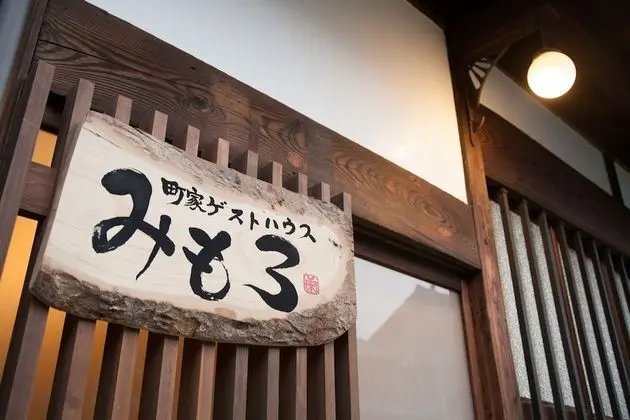 町家ゲストハウス
みもろ